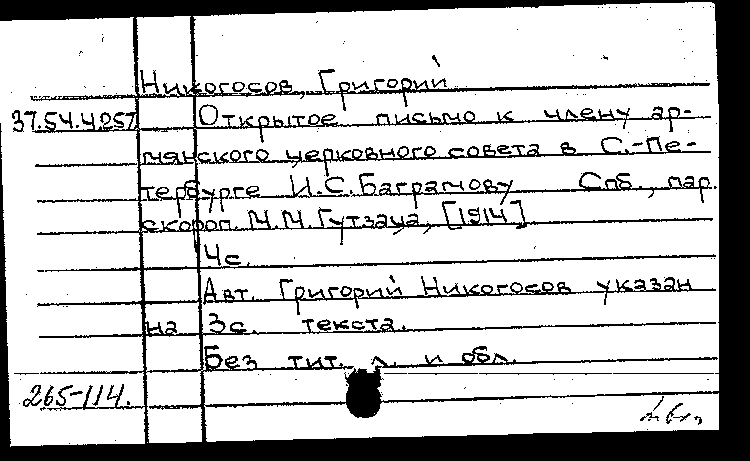 Никогосов, Григорий
37.54.4.257 Открытое письмо к члену ар-
мянского церковного совета в С.-Пе-
тербурге И.С.Баграмову Спб., пар.
скороп. М.М.Гутзаца, [1914]
4с.
Авт. Григорий Никогосов указан
на 3с. текста.
Без тит. л. и обл.
265-114.